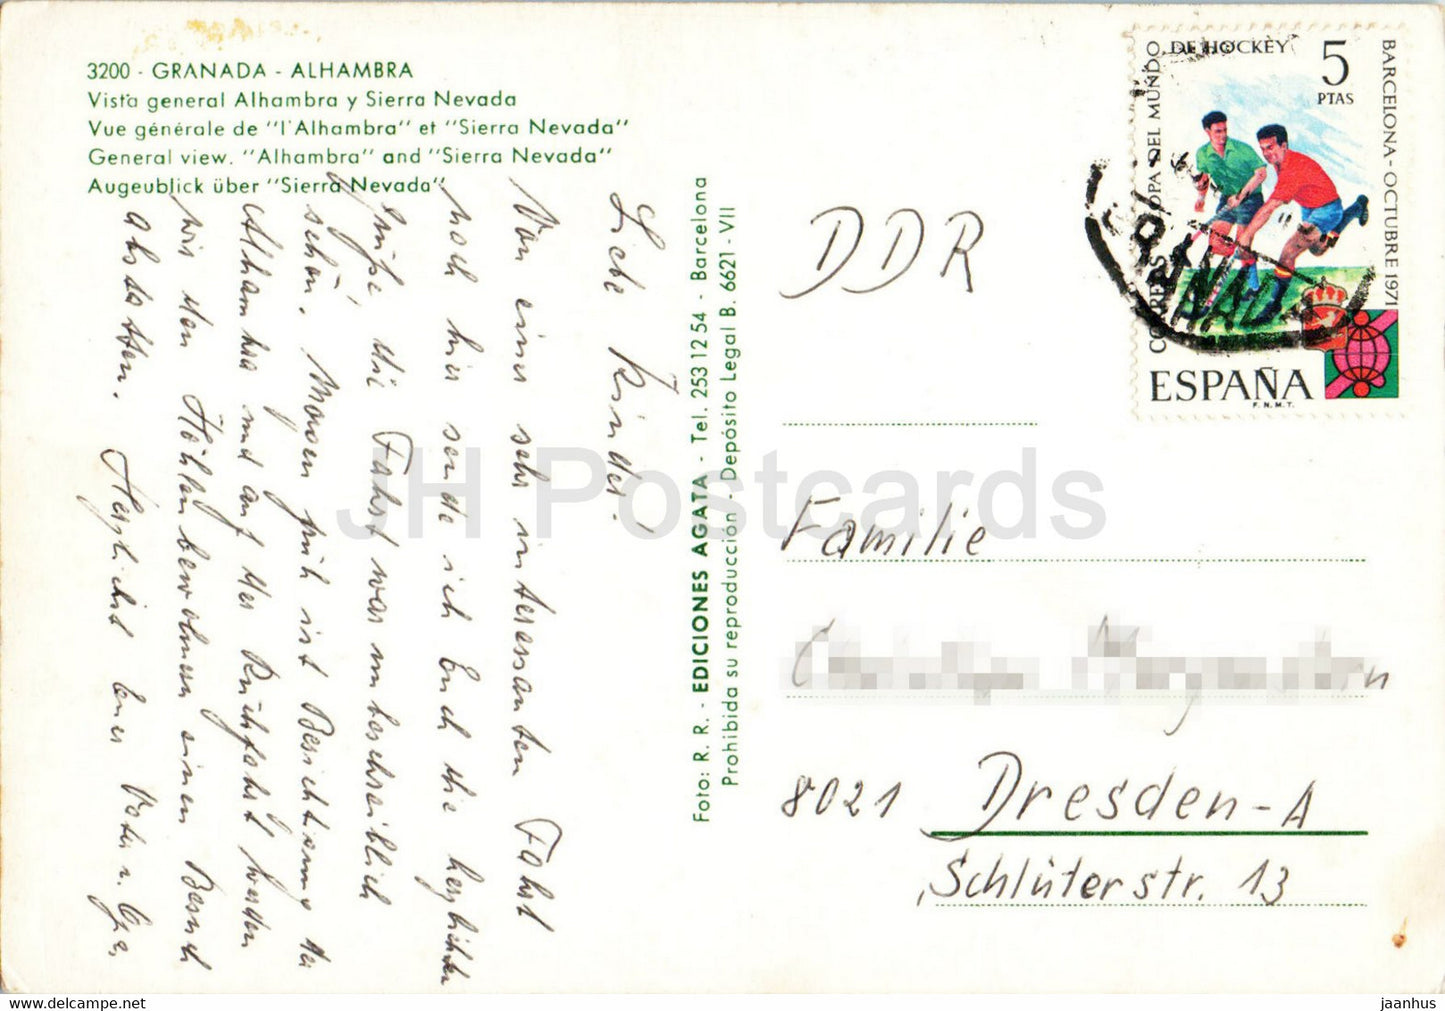 3200 - GRANADA - ALHAMBRA
Vista general Alhambra y Sierra Nevada
Vue générale de "l'Alhambra" et "Sierra Nevada"
General view. "Alhambra" and "Sierra Nevada"
Augeublick über "Sierra Nevada"
Liebe Kinder!
Von einer sehr interessanten Fahrt
noch hier sende ich Euch die herzlichsten
Grüße, die Fahrt war unbeschreiblich
schön. Morgen früh ist Besichtigung der
Alhambra und auf der Rückfahrt werden
wir den Höhlenbewohnern einen Besuch
abstatten. Herzlichst Euer Vater u.
Foto: R. R. - EDICIONES AGATA - Tel. 253 12 54 - Barcelona
Prohibida su reproducción - Depósito Legal B. 6621 - VII
CORREOS
COPA DEL MUNDO
DE HOCKEY
5
PTAS
BARCELONA - OCTUBRE 1971
ESPAÑA
F.N.M.T.
GRANADA
DDR
Familie
8021 Dresden-A
Schlüterstr. 13
JH Postcards
jaanhus/delcampe.net